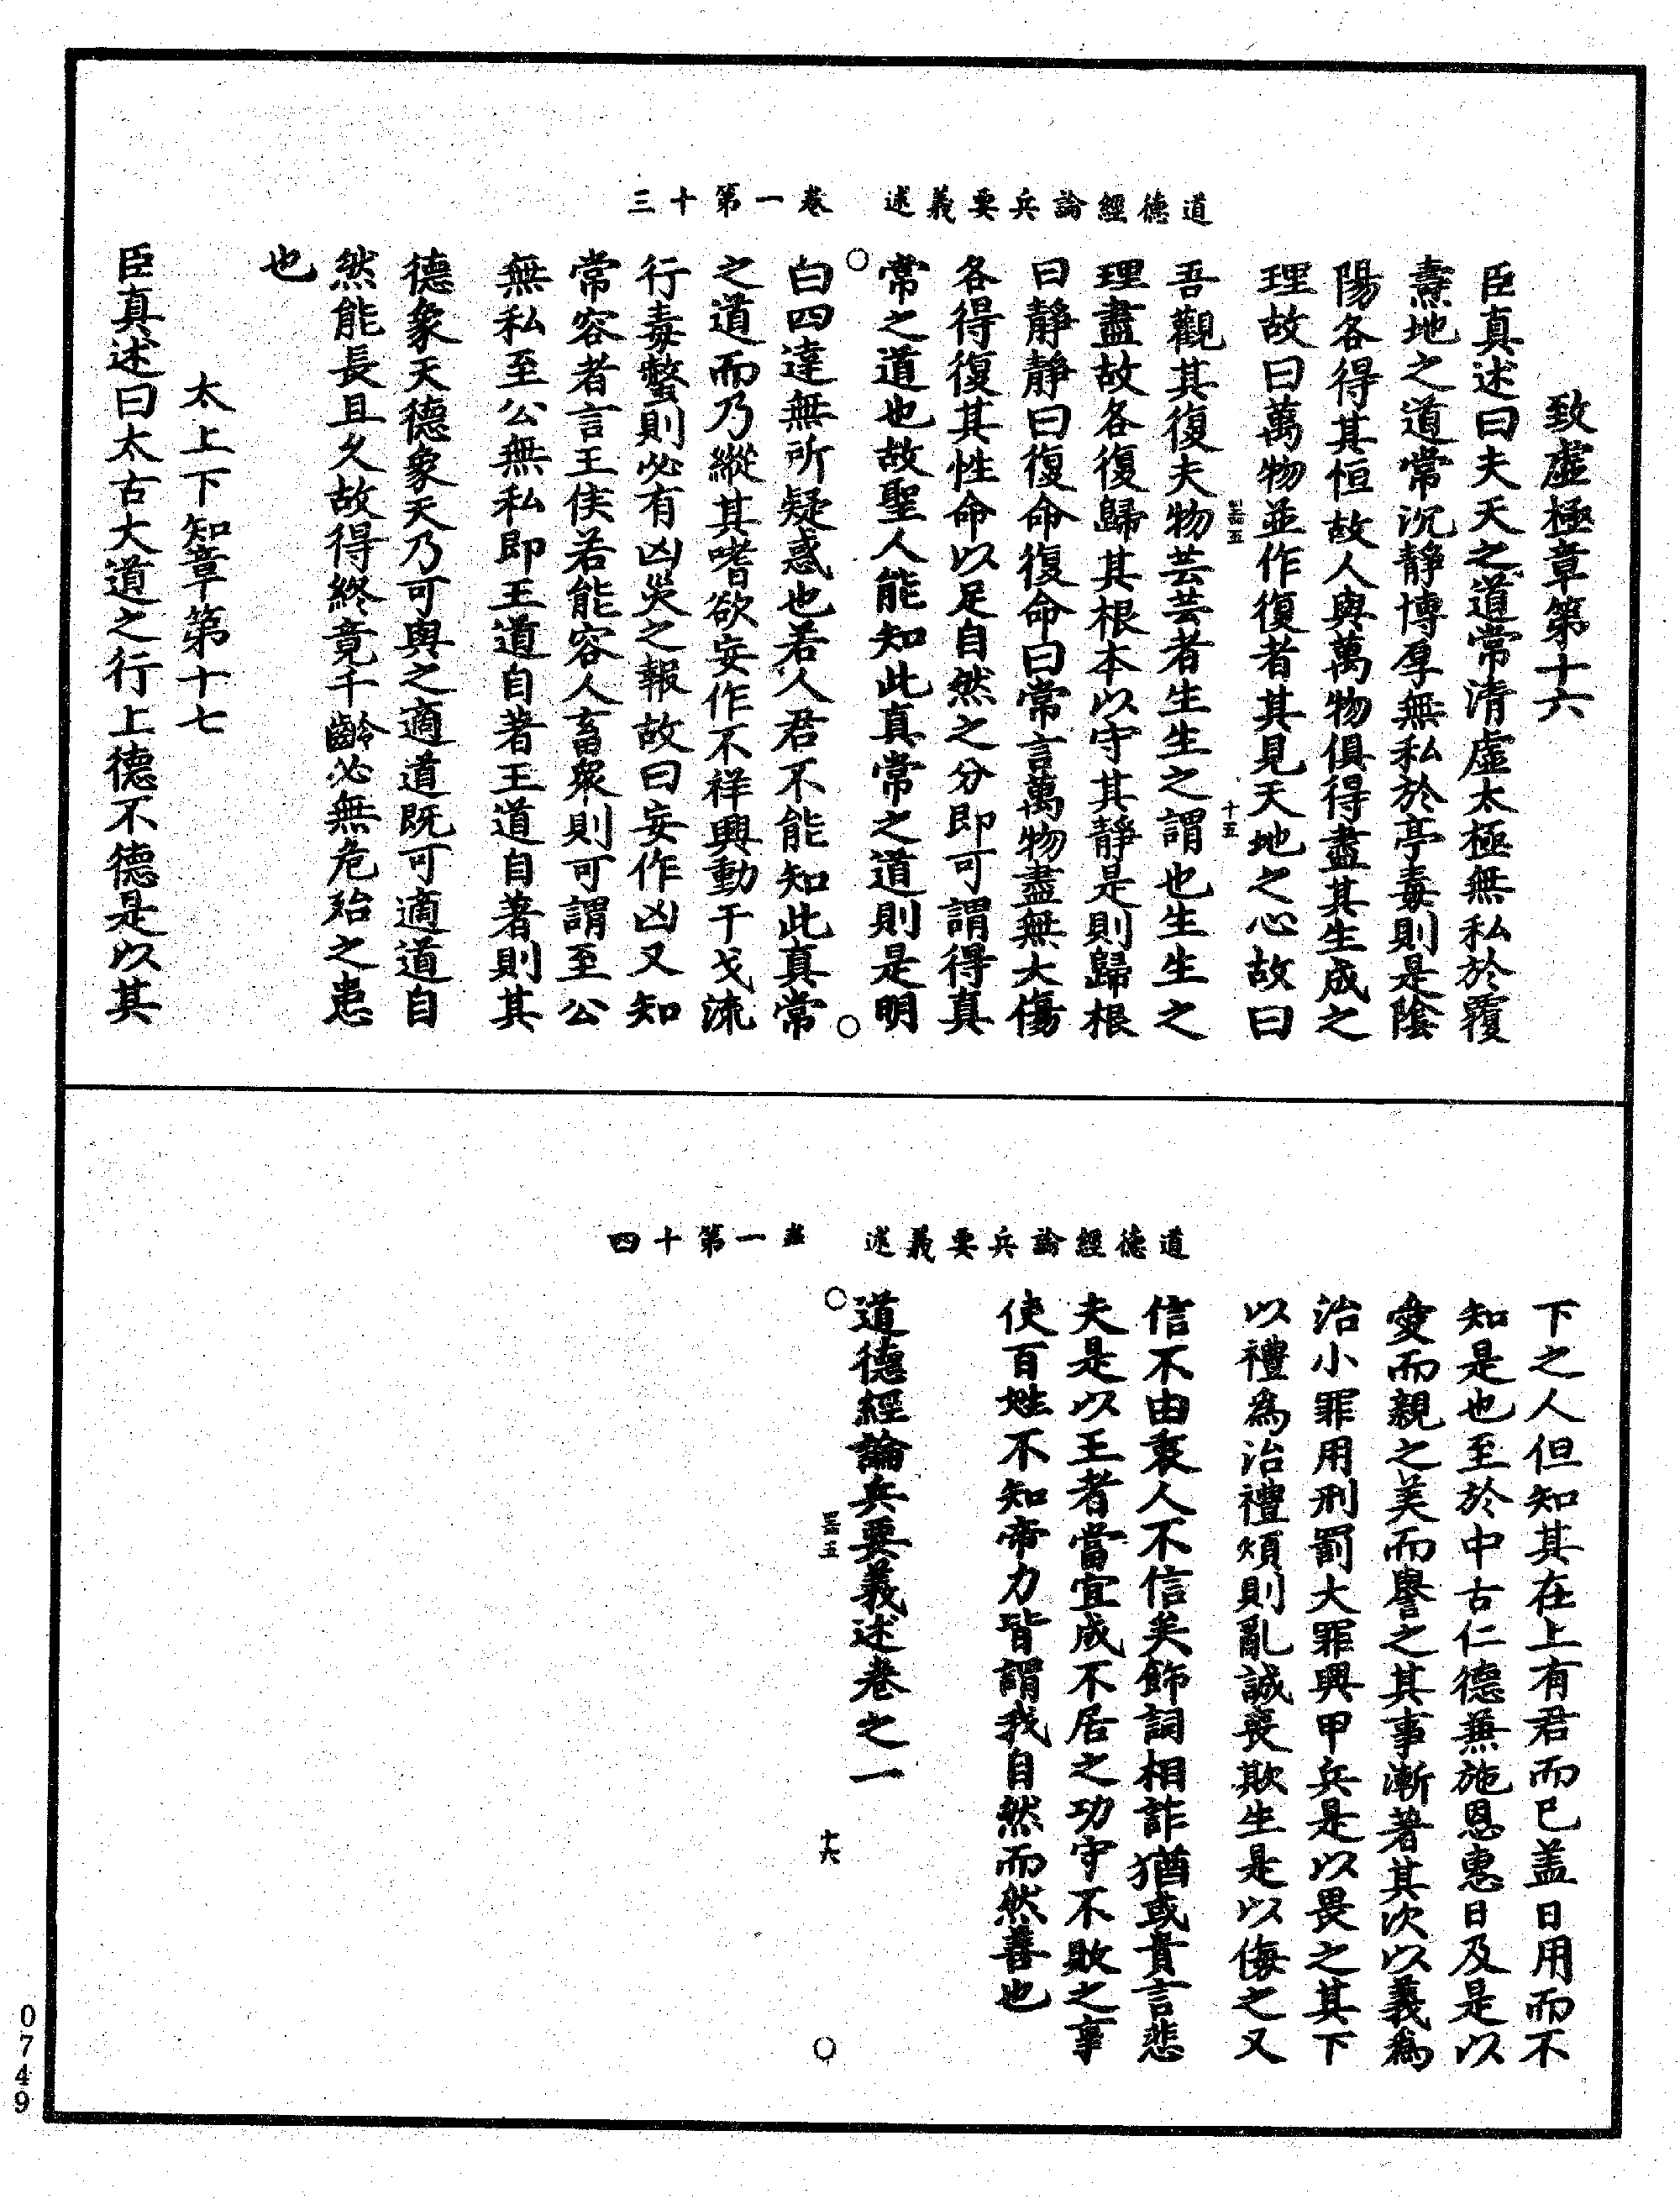 道德經論兵要義述　卷一第十三
致虛極章第十六
臣真述曰夫天之道常清虛太極無私於覆
燾地之道常沉靜博厚無私於亭毒則是陰
陽各得其恒故人與萬物俱得盡其生成之
理故曰萬物並作復者其見天地之心故曰
十五
吾觀其復夫物芸芸者生生之謂也生生之
理盡故各復歸其根本以守其靜是則歸根
曰靜靜曰復命復命曰常言萬物盡無大傷
各得復其性命以足自然之分即可謂得真
常之道也故聖人能知此真常之道則是明
白四達無所疑惑也若人君不能知此真常
之道而乃縱其嗜欲妄作不祥興動干戈流
行毒螫則必有凶災之報故曰妄作凶又知
常容者言王侯若能容人畜眾則可謂至公
無私至公無私即王道自著王道自著則其
德象天德象天乃可與之適道既可適道自
然能長且久故得終竟千齡必無危殆之患
也
太上下知章第十七
臣真述曰太古大道之行上德不德是以其
道德經論兵要義述　卷一第十四
下之人但知其在上有君而已蓋日用而不
知是也至於中古仁德兼施恩惠日及是以
愛而親之美而譽之其事漸著其次以義為
治小罪用刑罰大罪興甲兵是以畏之其下
以禮為治禮煩則亂誠喪欺生是以侮之又
信不由衷人不信矣飾詞相詐猶或貴言悲
夫是以王者當宜成不居之功守不敗之事
使百姓不知帝力皆謂我自然而然善也
道德經論兵要義述卷之一
十六
0749